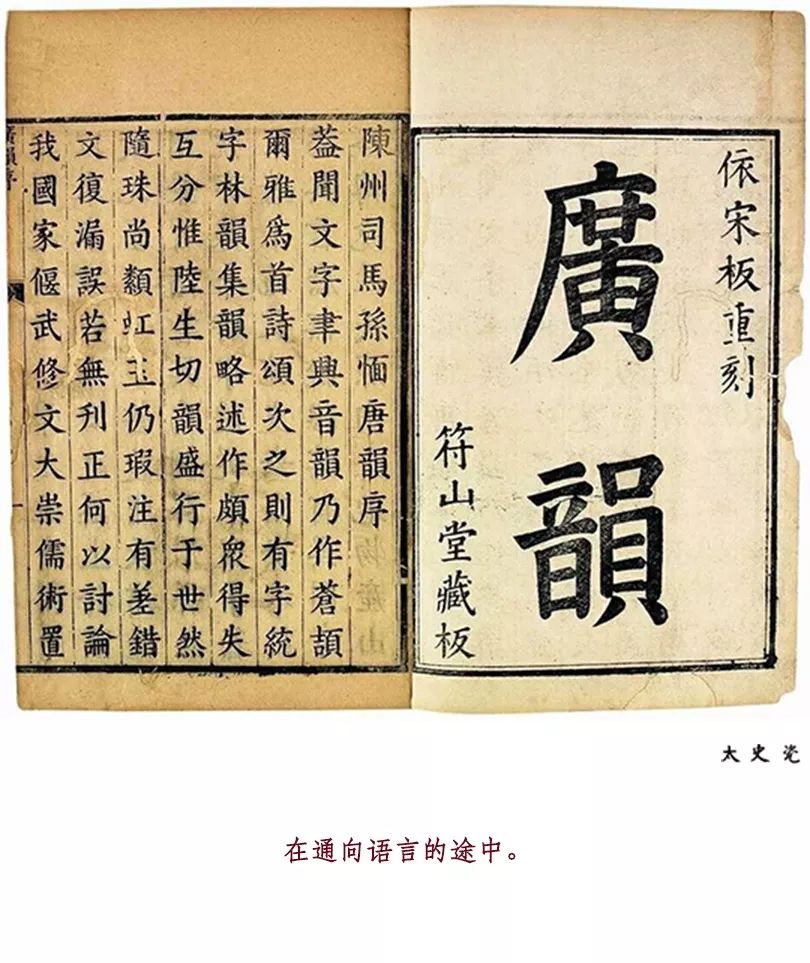 依宋板重刻
廣韻
符山堂藏板
陳州司馬孫愐唐韻序
葢聞文字聿興音韻乃作蒼頡
爾雅爲首詩頌次之則有字統
字林韻集韻略述作頗衆得失
互分惟陸生切韻盛行于世然
隨珠尚纇虹玉仍瑕注有差錯
文復漏誤若無刊正何以討論
我國家偃武修文大崇儒術置
廣韻序
太史瓷
在通向语言的途中。